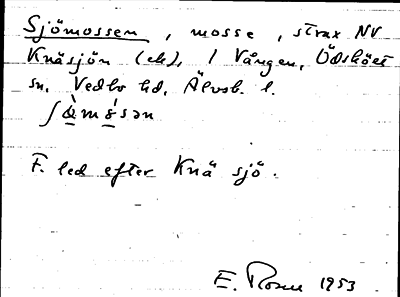 Sjömossen, mosse, strax NV
Knäsjön (ek), / Vången, Ödsköts
sn, Vedbo hd, Älvsb. l.
F. led efter Knä sjö.
E. Rosen 1953